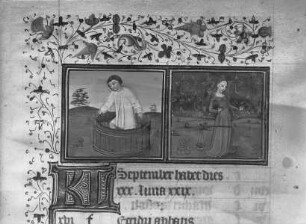 KL September habet dies
xxx. luna xxix.
xvi f Egidii abbatis